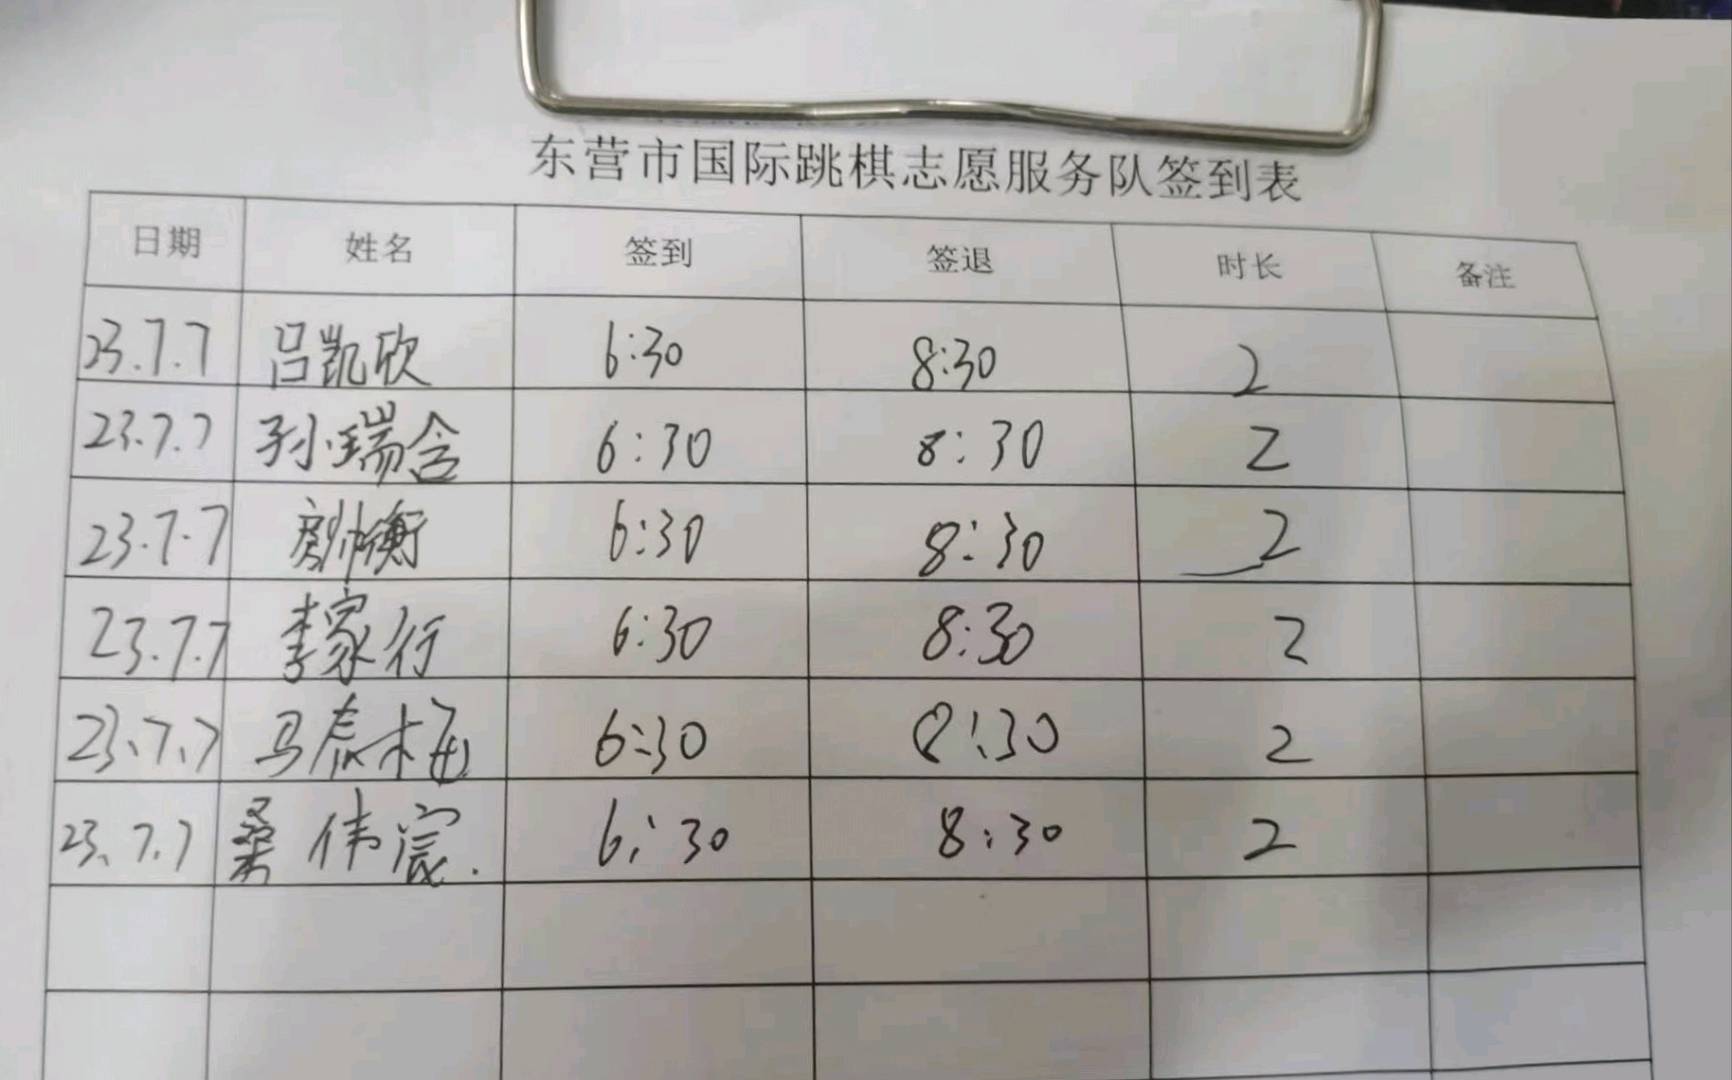 东营市国际跳棋志愿服务队签到表
日期 姓名 签到 签退 时长 备注
23.7.7 吕凯欣 6:30 8:30 2
23.7.7 孙瑞含 6:30 8:30 2
23.7.7 6:30 8:30 2
23.7.7 李家行 6:30 8:30 2
23.7.7 马 6:30 8:30 2
23.7.7 桑伟宸. 6:30 8:30 2